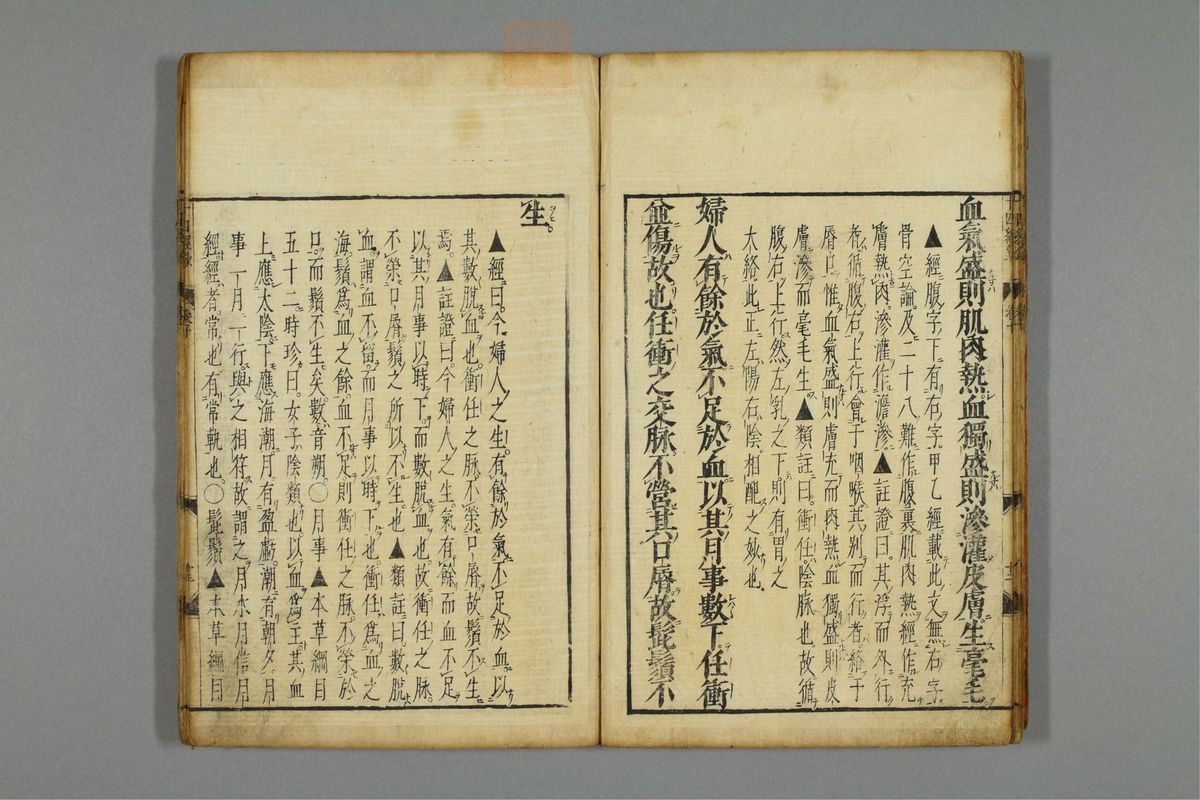 血氣盛則肌肉熱血獨盛則滲灌皮膚生毫毛
▲經腹字下有右字甲乙經載此文無右字
骨空論及二十八難作腹裏肌肉熱經作充
膚熱肉滲灌作澹滲▲註證曰其浮而外行
者循腹右上行會于咽喉其別而行者絡于
脣口惟血氣盛則膚充而肉熱血獨盛則皮
膚滲而毫毛生▲類註曰衝任陰脉也故循
腹右上行然左乳之下則有胃之
大絡此正左陽右陰相配之妙也
婦人有餘於氣不足於血以其月事數下任衝
並傷故也任衝之交脉不營其口脣故髭鬚不
生
▲經曰今婦人之生有餘於氣不足於血以
其數脫血也衝任之脉不榮口脣故鬚不生
焉▲註證曰今婦人之生氣有餘而血不足
以其月事以時下而數脫血也故衝任之脉
不榮口脣鬚之所以不生也▲類註曰數脫
血謂血不留而月事以時下也衝任爲血之
海鬚爲血之餘血不足則衝任之脉不榮於
口而鬚不生矣數音朔○月事▲本草綱目
五十二時珍曰女子陰類也以血爲主其血
上應太陰下應海潮月有盈虧潮有朝夕月
事一月一行與之相符故謂之月水月信月
經經者常也有常軌也○髭鬚▲本草綱目